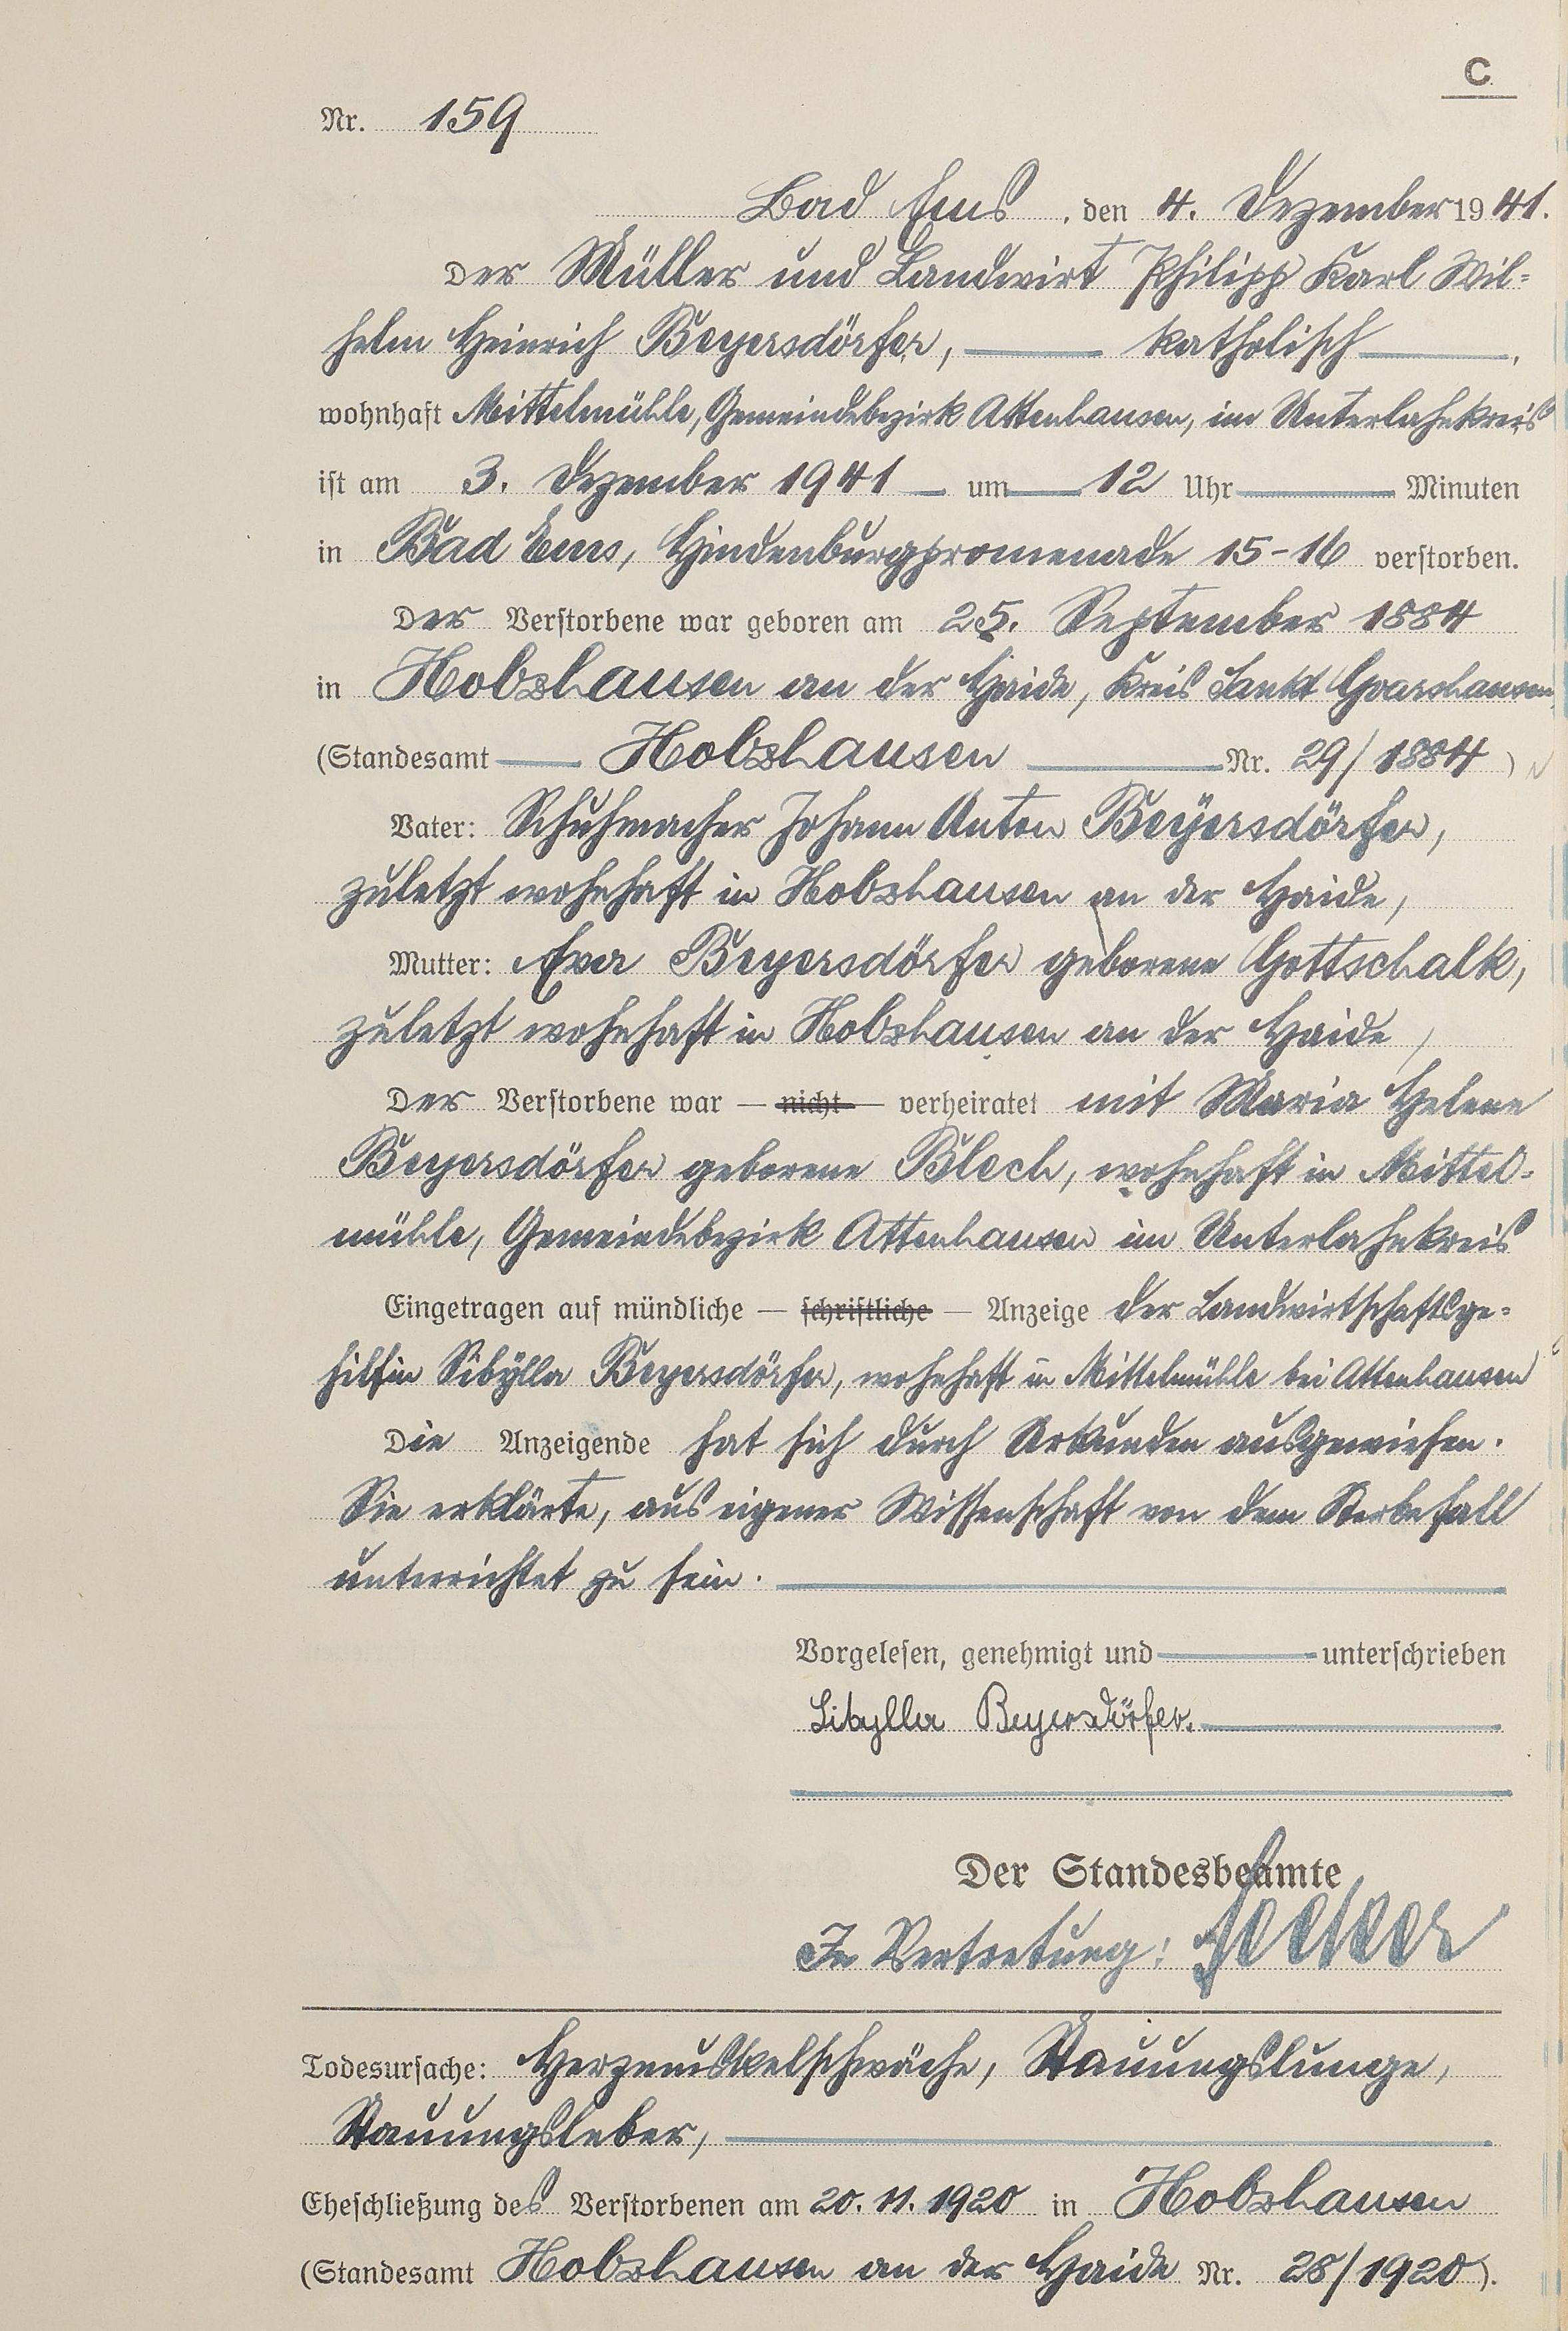 C
Nr. 159
Bad Ems, den 4. Dezember 1941.
Der Müller und Landwirt Philipp Karl Wil=
helm Heinrich Beyersdörfer, katholisch,
wohnhaft Mittelmühle, Gemeindebezirk Attenhausen, im Unterlahnkreis
ist am 3. Dezember 1941 um 12 Uhr Minuten
in Bad Ems, Hindenburgpromenade 15-16 verstorben.
Der Verstorbene war geboren am 25. September 1884
in Holzhausen an der Haide, Kreis Sankt Goarshausen,
(Standesamt Holzhausen Nr. 29/1884)
Vater: Schuhmacher Johann Anton Beyersdörfer,
zuletzt wohnhaft in Holzhausen an der Haide,
Mutter: Eva Beyersdörfer geborene Gottschalk,
zuletzt wohnhaft in Holzhausen an der Haide,
Der Verstorbene war — nicht — verheiratet mit Maria Helene
Beyersdörfer geborene Blech, wohnhaft in Mittel-
mühle, Gemeindebezirk Attenhausen im Unterlahnkreis
Eingetragen auf mündliche — schriftliche — Anzeige der Landwirtschaftsge=
hilfin Sibylla Beyersdörfer, wohnhaft in Mittelmühle bei Attenhausen
Die Anzeigende hat sich durch Urkunden ausgewiesen.
Sie erklärte, aus eigener Wissenschaft von dem Sterbefall
unterrichtet zu sein.
Vorgelesen, genehmigt und unterschrieben
Sibylla Beyersdörfer.
Der Standesbeamte
In Vertretung:
Todesursache: Herzmuskelschwäche, Stauungslunge,
Stauungsleber,
Eheschließung des Verstorbenen am 20.11.1920 in Holzhausen
(Standesamt Holzhausen an der Haide Nr. 28/1920).